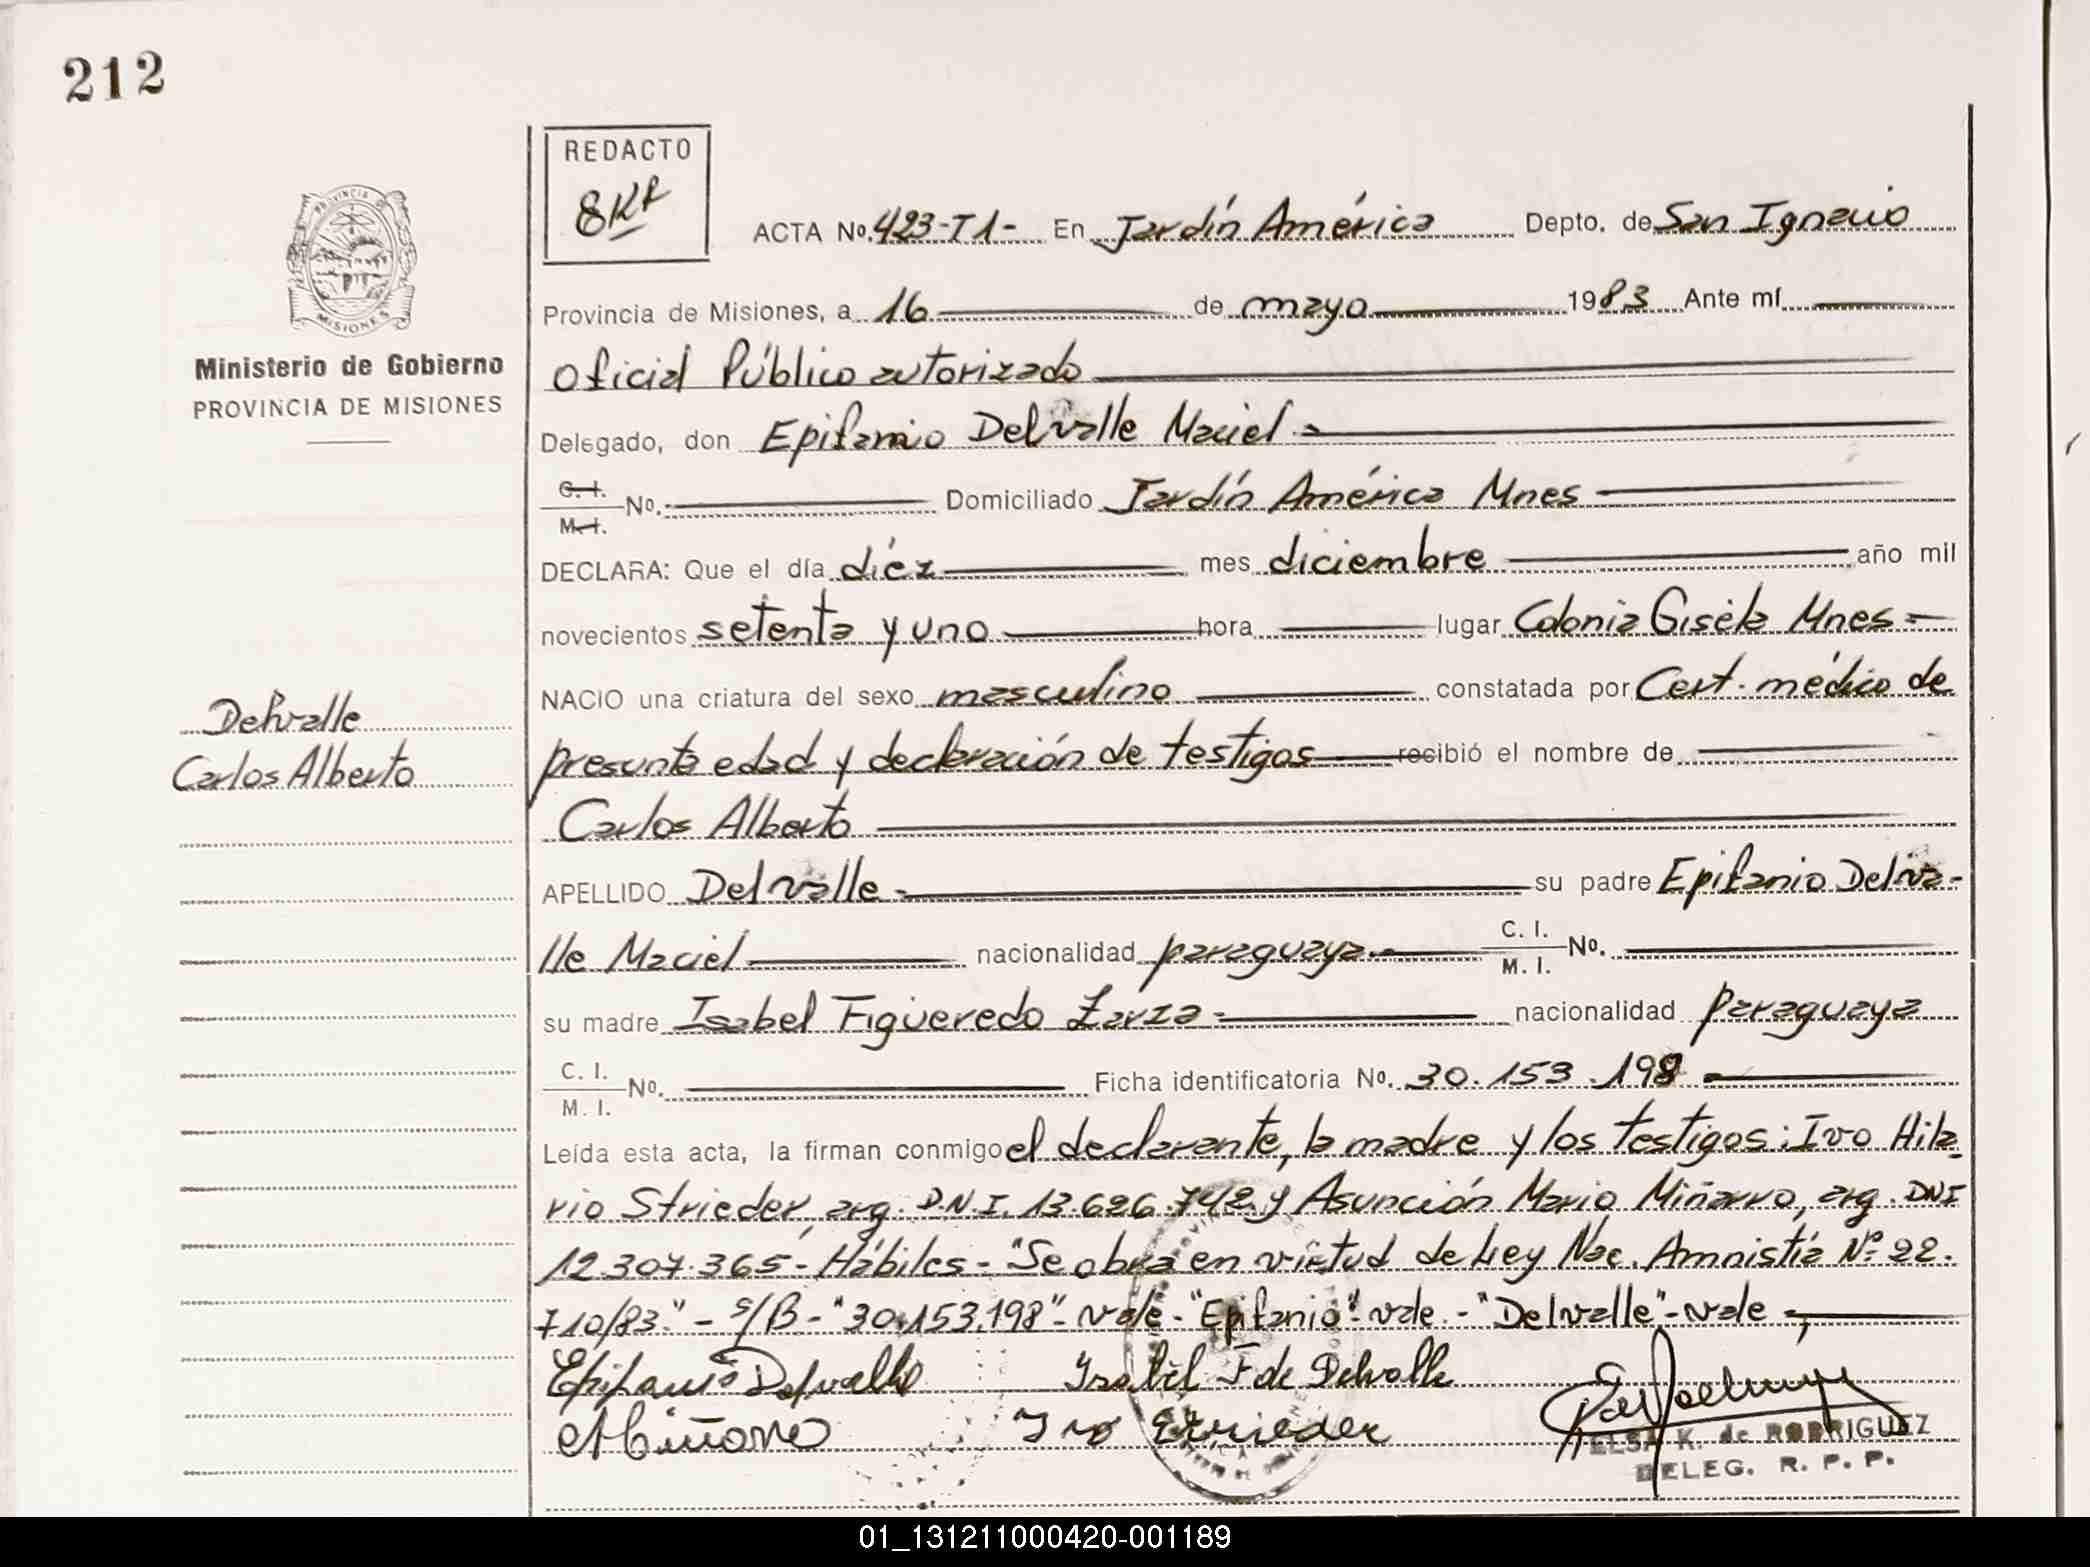 212
REDACTO
PROVINCIA DE
MISIONES
Ministerio de Gobierno
PROVINCIA DE MISIONES
Delvalle
Carlos Alberto
ACTA No. 423-T1- En Jardín América Depto. de San Ignacio
Provincia de Misiones, a 16 de mayo 1983 Ante mí
Oficial Público autorizado
Delegado, don Epifanio Delvalle Maciel.-
C. I. M. I. No. Domiciliado Jardín América Mnes
DECLARA: Que el día diéz mes diciembre año mil
novecientos setenta y uno hora lugar Colonia Giséla Mnes-
NACIO una criatura del sexo masculino constatada por Cert. médico de
presunta edad y declaración de testigos recibió el nombre de
Carlos Alberto
APELLIDO Delvalle- su padre Epifanio Delva-
lle Maciel nacionalidad paraguaya.- C. I. M. I. No.
su madre Isabel Figueredo Zarza- nacionalidad paraguaya
C. I. M. I. No. Ficha identificatoria No. 30.153.198.-
Leída esta acta, la firman conmigo el declarante, la madre y los testigos: Ivo Hila-
rio Strieder, arg. D.N.I. 13.626.742 y Asunción Mario Miñarro, arg. DNI
12.307.365- Hábiles- "Se obra en virtud de Ley Nac. Amnistía Nº 22.
710/83." - s/B- "30.153.198"- vale- "Epifanio" vale.- "Delvalle"- vale-,
Epifanio Delvalle Isabel F de Delvalle
Miñarro Ivo Strieder
ELSA K. de RODRIGUEZ
DELEG. R. P. P.
01_131211000420-001189